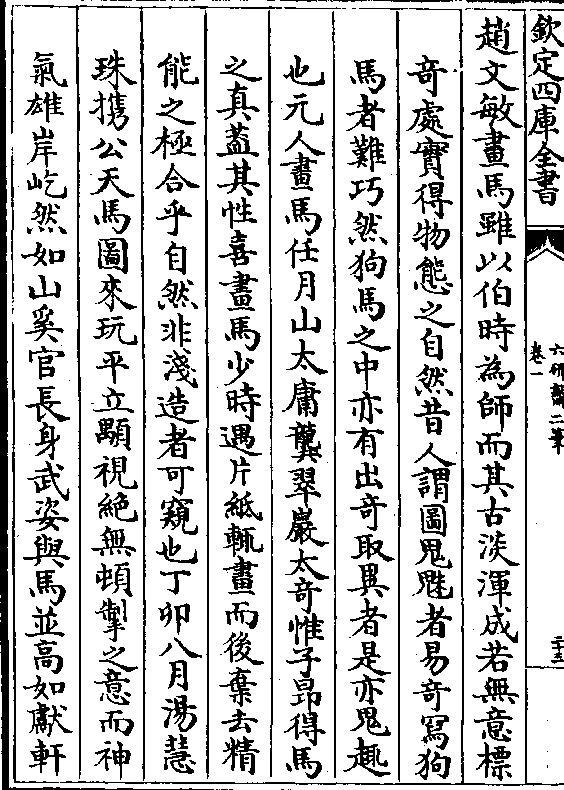 欽定四庫全書
六研齋二筆
卷一
二十三
趙文敏畫馬雖以伯時為師而其古淡渾成若無意標
奇處實得物態之自然昔人謂圖鬼魅者易奇寫狗
馬者難巧然狗馬之中亦有出奇取異者是亦鬼趣
也元人畫馬任月山太庸龔翠巖太奇惟子昂得馬
之真葢其性喜畫馬少時遇片紙輒畫而後棄去精
能之極合乎自然非淺造者可窺也丁卯八月湯慧
珠攜公天馬圖來玩平立顒視絶無頓掣之意而神
氣雄岸屹然如山奚官長身武姿與馬並高如獻軒